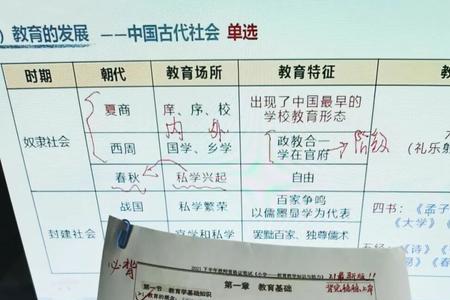 ）教育的发展 ——中国古代社会 单选
时期 朝代 教育场所 教育特征 教
奴隶社会
夏商 庠、序、校 出现了中国最早的
学校教育形态
内 外
西周 国学、乡学 政教合一
学在官府 阶级
（礼乐射
春秋 私学兴起 自由
封建社会
战国 私学繁荣 百家争鸣
以儒墨显学为代表
四书：《孟子
《大学》
官学和私学 罢黜百家、独尊儒术
《诗》
《易》
必背
第一章 教育基础
第一节 教育学基础知识